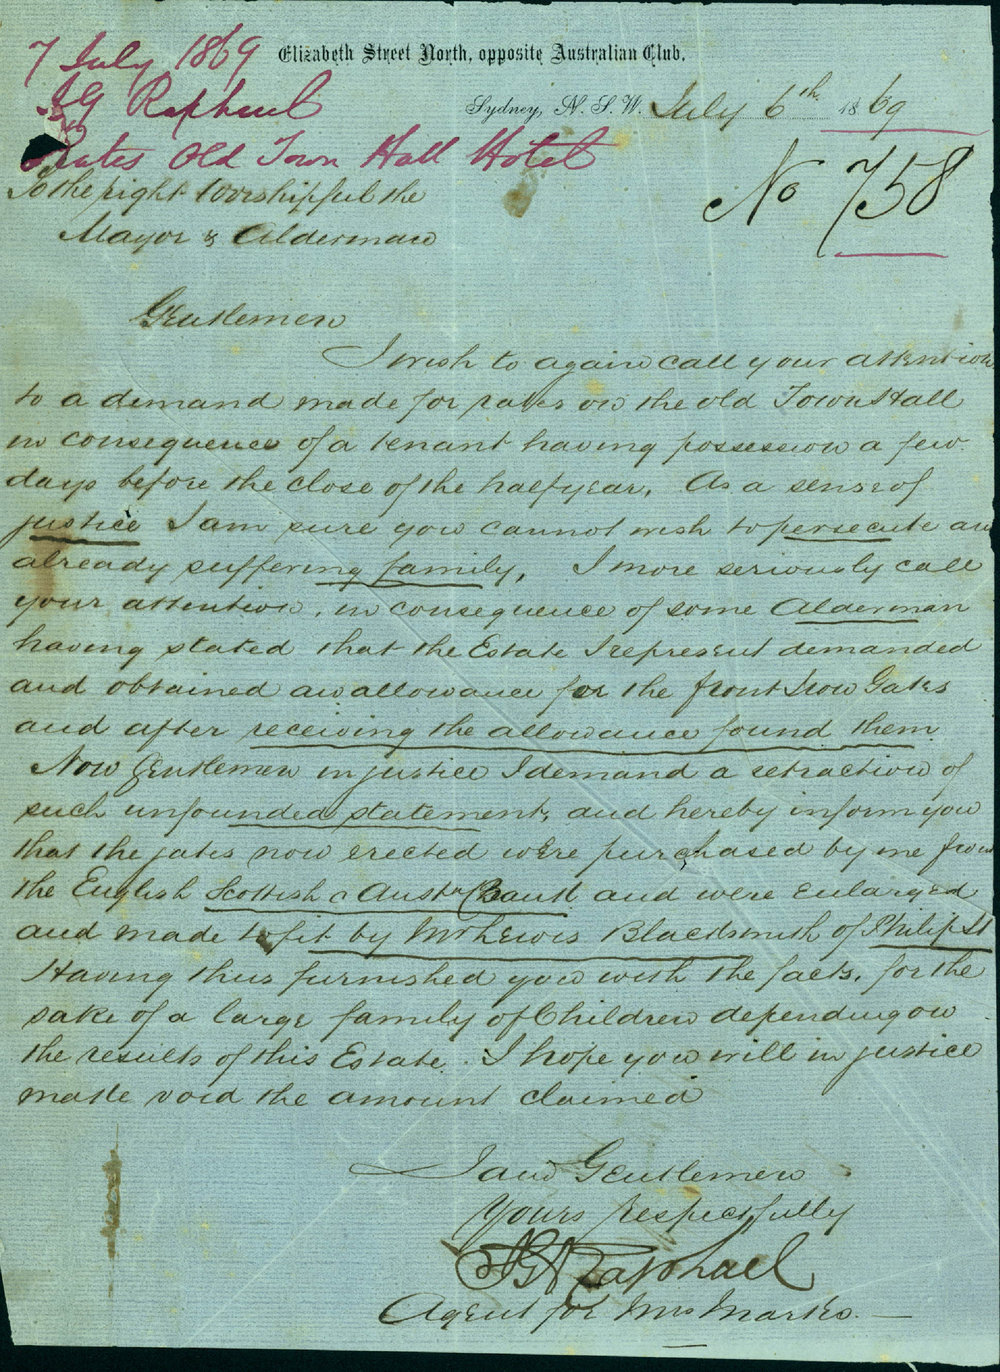 7 July 1869
J G Raphael
Rates Old Town Hall Hotel
Elizabeth Street North, opposite Australian Club,
Sydney, N. S. W. July 6th 1869
No 758
To the right Worshipful the
Mayor & Alderman
Gentlemen
I wish to again call your attention
to a demand made for rates on the old Town Hall
in consequence of a tenant having possession a few
days before the close of the half year. As a sense of
justice I am sure you cannot wish to persecute an
already suffering family. I more seriously call
your attention, in consequence of some Alderman
having stated that the Estate I represent demanded
and obtained an allowance for the front Iron Gates
and after receiving the allowance found them
Now Gentlemen in justice I demand a retraction of
such unfounded statement, and hereby inform you
that the gates now erected were purchased by me from
the English Scottish & Austn Bank and were enlarged
and made to fit by Mr Lewis Blacksmith of Philip St
Having thus furnished you with the facts, for the
sake of a large family of Children depending on
the results of this Estate. I hope you will in justice
make void the amount claimed
I am Gentlemen
Yours respectfully
J G Raphael
Agent for Mrs Marks.